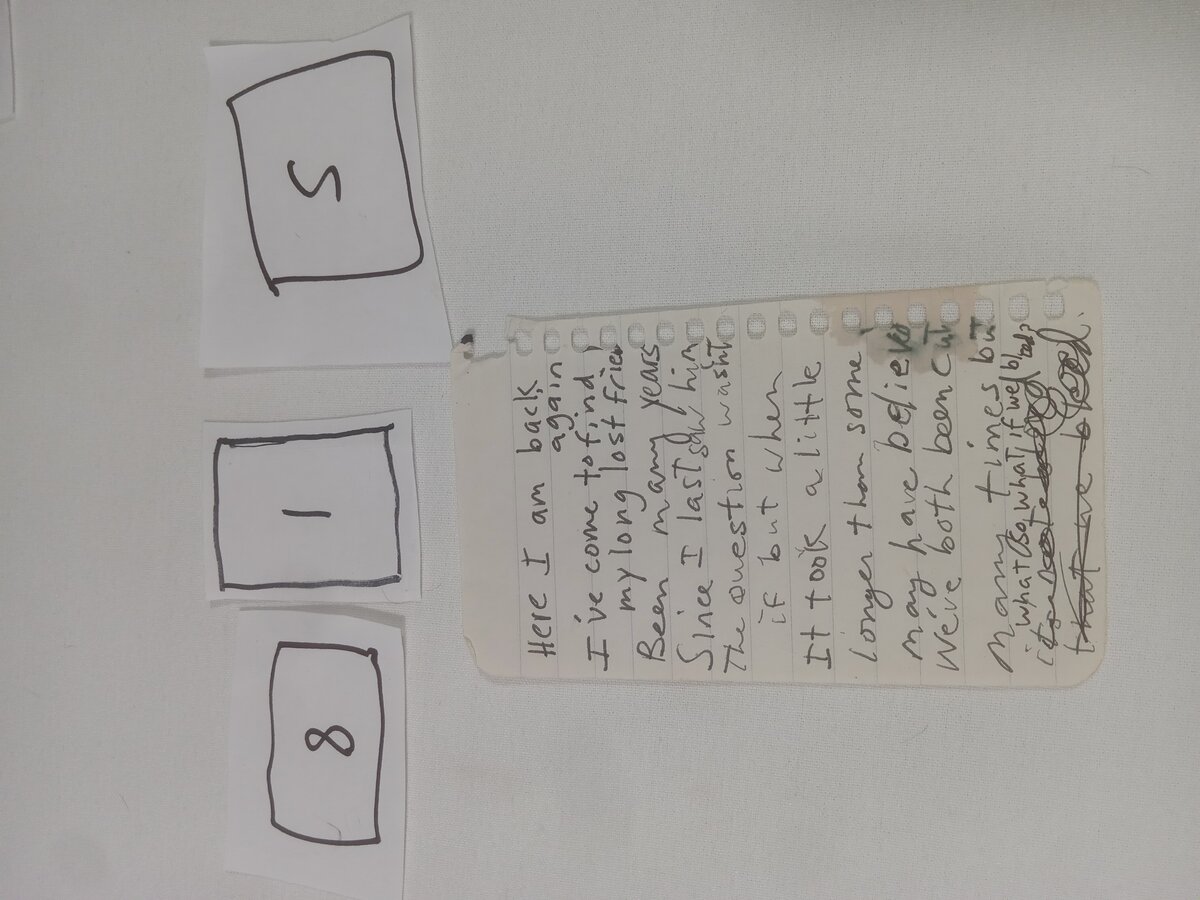 8 1 5
Here I am back
again
I've come to find
my long lost frien
Been many years
Since I last saw him
The question wasn't
if but when
It took a little
longer than some
may have believ
We've both been cut
many times but
what (so what if we bleed)
that we bleed.